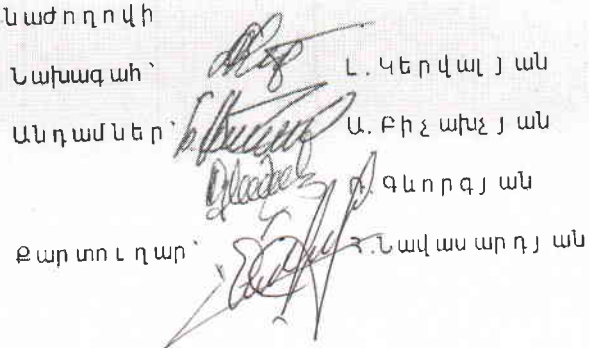 նաժողովի
Նախագահ՝ Լ. Կերվալյան
Անդամներ՝ Ա. Բիչախչյան
Գևորգյան
Քարտուղար՝ Նավասարդյան